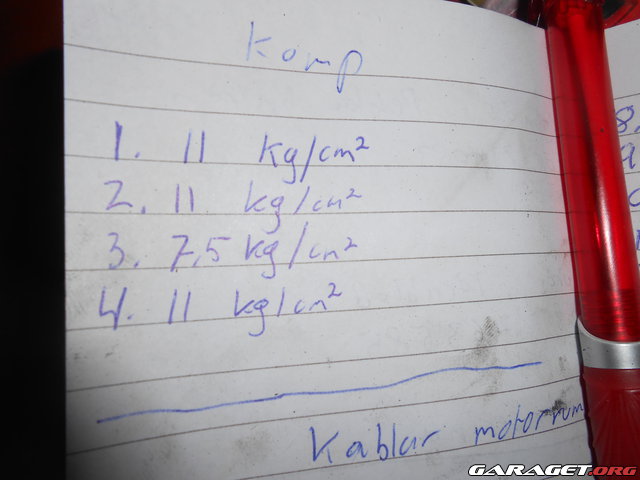 Komp
1. 11 kg/cm²
2. 11 kg/cm²
3. 7,5 kg/cm²
4. 11 kg/cm²
Kablar motorrum
8.
9
GARAGET.ORG